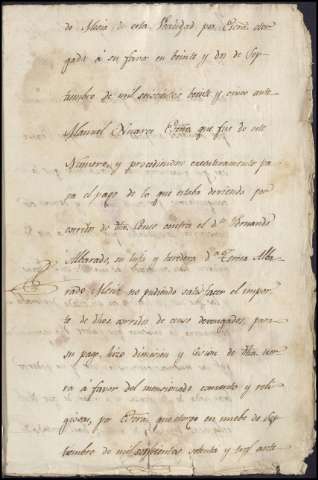 de Mesia de esta Vecindad por Escra. otor-
gada á su favor en beinte y dos de Sep-
tiembre de mil seiscientos beinte y cinco ante
Manuel Escño. que fue de este
Numero, y procediendose executivamente pa-
ra el pago de lo que estaba deviendo por
corridos de dho. Censo contra el dn. Fernando
Albarado, su hija y heredera Da. Teresa Alba-
rado no pudiendo satisfacer el impor-
te de dhos corridos de censo devengados, para
su pago, hizo dimision y Cesion de dha. tier-
ra á favor del mencionado convento y reli-
giosas, por Escra. que otorgo en nuebe de Sep-
tiembre de mil setecientos setenta y tres ante